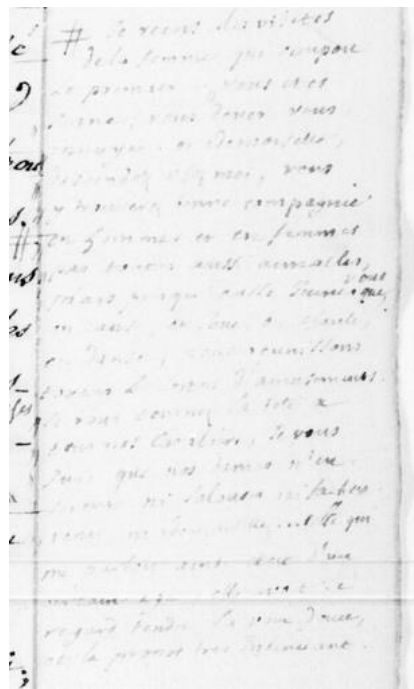 # Je reçus des visites
de la femme qui occupoit
le premier, vous etes
jeune, vous devez vous
ennuyer mademoiselle,
descendez chez moi, vous
y trouverez bonne compagnie
en hommes et en femmes
pas toutes aussi aimables,
mais aussi jeunes que vous
on cause, on joue, on chante,
on danse, nous reunissons
toutes les sortes d'amusemens.
si vous tournez la tête a
tous nos cavaliers, je vous
jure que nos dames n'en
seront ni jalouses ni fachées
venez mademoiselle... Celle qui
me parloit ainsi etoit d'un
certain age, elle avoit le
regard tendre, la voix douce,
et le propos très insinuant.